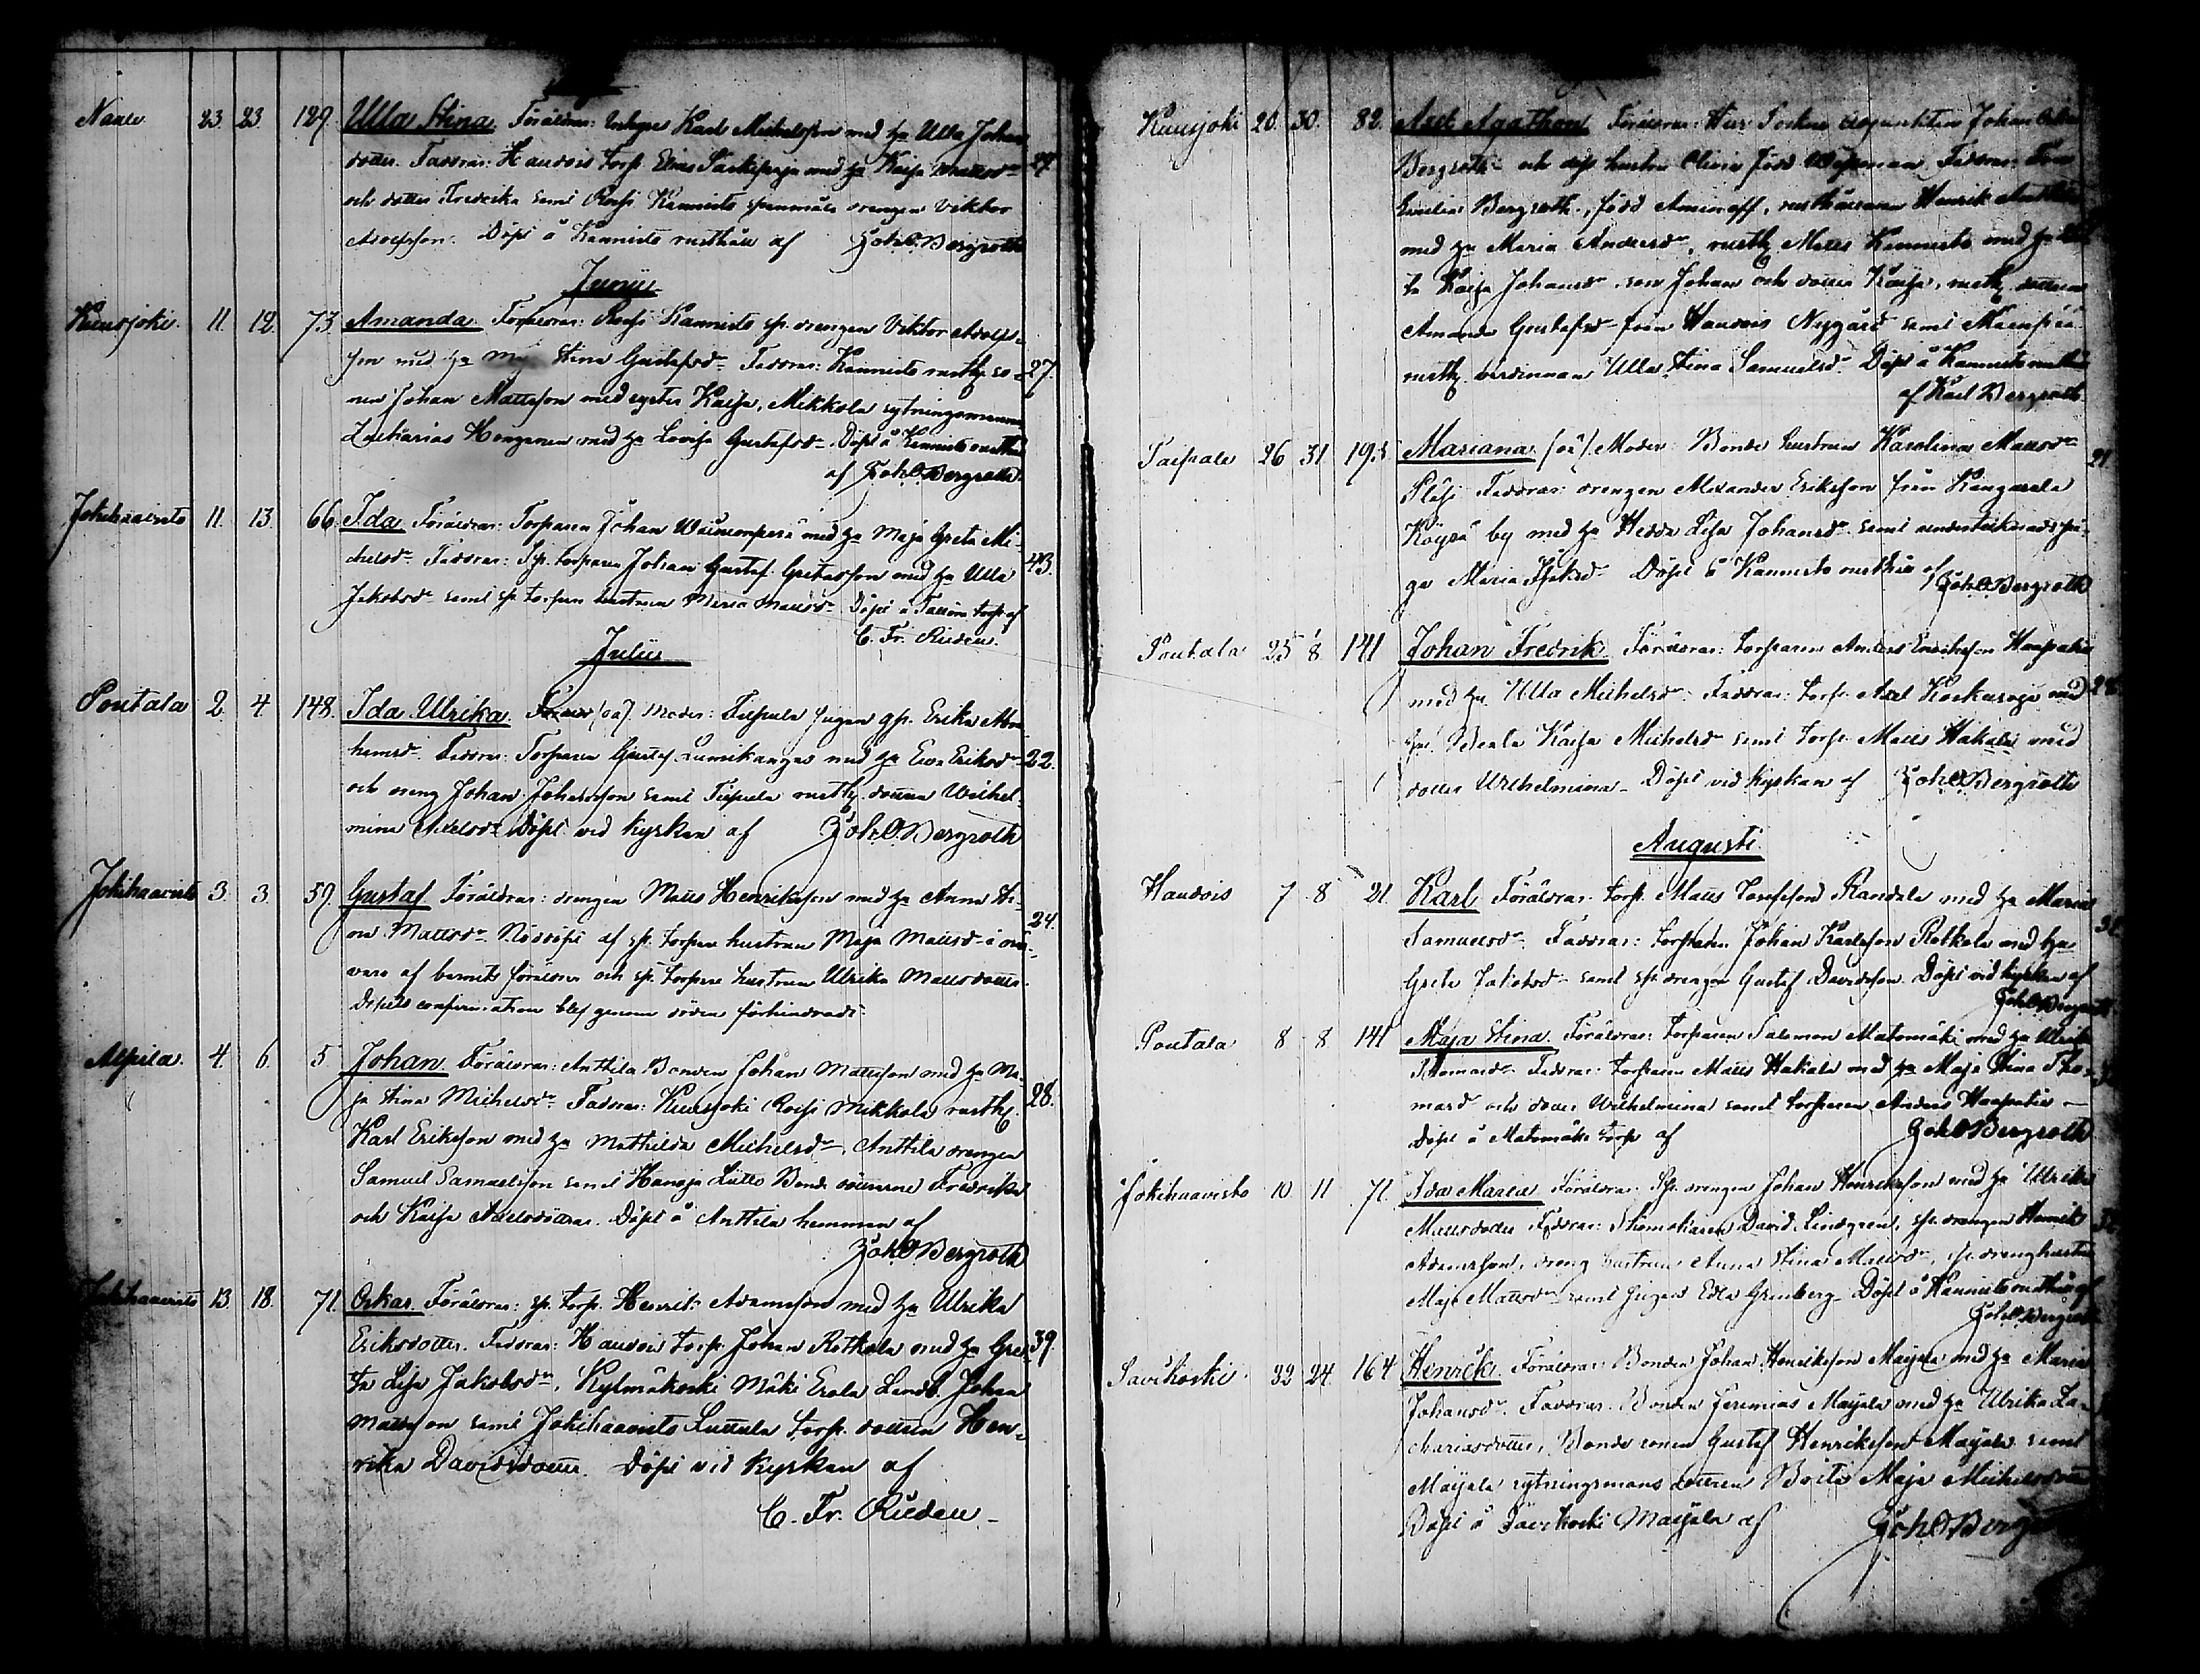 Naale 23. 23. 129. Ulla Stina. Föräldrar: Inhyses Karl Michelsson med h:u Ulla Johans
dotter. Faddrar: Hauvois Torp. Elias med h:u Kaisa Mattsd:r 29.
och dotter Fredrika samt Rossi Kannisto spannmåls drengen Viktor
Adolfsson. Döpt å Kannisto rusthåll af Joh. O. Bergroth
Junii
Kuusjoki. 11. 12. 73. Amanda. Föräldrar: Rossi Kannisto sp. drengen Viktor Adolfs-
son med h:u Stina Gustafsd:r Faddrar: Kannisto rusth. so- 27.
nen Johan Mattsson med syster Kaisa, Mikkola sytningsmannen
Zacharias med h:u Lovisa Gustafsd:r Döpt å Kannisto rusthåll
af Joh. O. Bergroth.
Jokihaavisto 11. 13. 66. Ida. Föräldrar: Torparen Johan med h:u Maja Greta Mi-
chelsd:r Faddrar: Sp. torparen Johan Gustaf med h:u Ulla 43.
Jakobsd:r samt sp. torpare hustrun Maria Mattsd:r Döpt å torp af
C. Fr. Rieden.
Julii
Pontala 2. 4. 148. Ida Ulrika. (oä). Moder: pigan Erika Abra-
hamsd:r Faddrar: Torparen Gustaf Lumikangas med h:u Eva Eriksd:r 22.
och dreng Johan Johansson samt rusth. dottren Wilhel-
mina Axelsd:r Döpt vid kyrkan af Joh. O. Bergroth
Jokihaavisto 3. 3. 59. Gustaf. Föräldrar: drengen Matts Henriksson med h:u Anna Sti-
na Mattsd:r Nöddöpt af sp. torpare hustrun Maja Mattsd:r i när- 24.
varo af barnets föräldrar och sp. torpare hustrun Ulrika Mattsdotter.
Dopets confirmation blef genom döden förhindradt.
Alpila. 4. 6. 5. Johan. Föräldrar: Anttila Bonden Johan Mattsson med h:u Ma-
ja Stina Michelsd:r Faddrar: Kuusjoki Rossi Mikkola rusth. 28.
Karl Eriksson med h:u Mathilda Michelsd:r, Anttila drengen
Samuel Samuelsson samt Bonde döttrarne Fredrika
och Kaisa Axelsdöttrar. Döpt å Anttila hemman af
Joh. O. Bergroth
Jokihaavisto 13. 18. 71. Oskar. Föräldrar: sp. torp. Henrik Adamsson med h:u Ulrika
Eriksdotter. Faddrar: Hauvois torp. Johan Rotkola med h:u Gre- 39.
ta Lisa Jakobsd:r, Kylmäkoski Mäki Erola Landb. Johan
Mattsson samt Jokihaavisto Luttula torp. dottren Hen-
rika Davidsdotter. Döpt vid kyrkan af
C. Fr. Rieden
Kuusjoki 20. 30. 82. Axel Agathon. Föräldrar: Herr Sockne Adjunkten Johan
Bergroth och dess hustru Olivia född Faddrar:
Emelie Bergroth, född Amineff, rusthållaren Henrik
med h:u Maria Andersd:r, rusth. Matts Kannisto med h:u
Kaisa Johansd:r, son Johan och dotter Kaisa, rusth. dottren
Amanda Gustafsd:r från Hauvois Nygård samt
rusth. värdinnan Ulla Stina Samuelsd:r. Döpt å Kannisto rusthåll
af Karl Bergroth.
Taipale 26 31 193 Mariana (oä). Moder: Bonde hustrun Karolina Mattsd:r 21
Faddrar: drengen Alexander Eriksson från Kangasala
by med h:u Hedda Lisa Johansd:r samt pi-
ga Maria Döpt å Kannisto rusthåll af Joh. O. Bergroth
Pontala 25 1/8 141 Johan Fredrik. Föräldrar: torparen Anders Haapakia
med h:u Ulla Michelsd:r Faddrar: torp. Axel Koskuroja med 28
h:u Beata Kaisa Michelsd:r samt torp. Matts Hakala med
dotter Wilhelmina. Döpt vid kyrkan af Joh. O. Bergroth
Augusti.
Hauvois 7 8 21. Karl. Föräldrar: torp. Matts Josefsson Randala med h:u Maria
Samuelsd:r. Faddrar: torparen Johan Karlsson Rotkola med h:u
Greta Jakobsd:r samt sp. drengen Gustaf Davidsson. Döpt vid kyrkan af
Joh. O. Bergroth
Pontala 8 8 141 Maja Stina. Föräldrar: torparen Salomon Matomäki med h:u Ulrika
Thomasd:r Faddrar: torparen Matts Hakala med h:u Maja Stina Tho-
masd:r och dotter Wilhelmina samt torparen Anders Haapakia
Döpt å Matomäki torp af Joh. O. Bergroth
Jokihaavisto 10. 11 71. Ida Maria. Föräldrar: Sp. drengen Johan Henriksson med h:u Ulrika
Mattsdotter Faddrar: Skomakaren David Lindgren, sp. drengen Henrik
Adamsson, dreng hustrun Anna Stina Mattsd:r, sp. dreng hustrun
Maja Mattsd:r samt pigan Edla Grönberg. Döpt å Kannisto rusthåll af
Joh. O. Bergroth
Savikoski 22 24 164 Henrick. Föräldrar: Bonden Johan Henriksson Maijala med h:u Maria
Johansd:r. Faddrar: Bonden Jeremias Maijala med h:u Ulrika Za-
chariasdotter, Bonde sonen Gustaf Henriksson Maijala samt
Maijala sytningsmans dottren Beata Maja Michelsdotter
Döpt å Savikoski Maijala af Joh. O. Bergroth